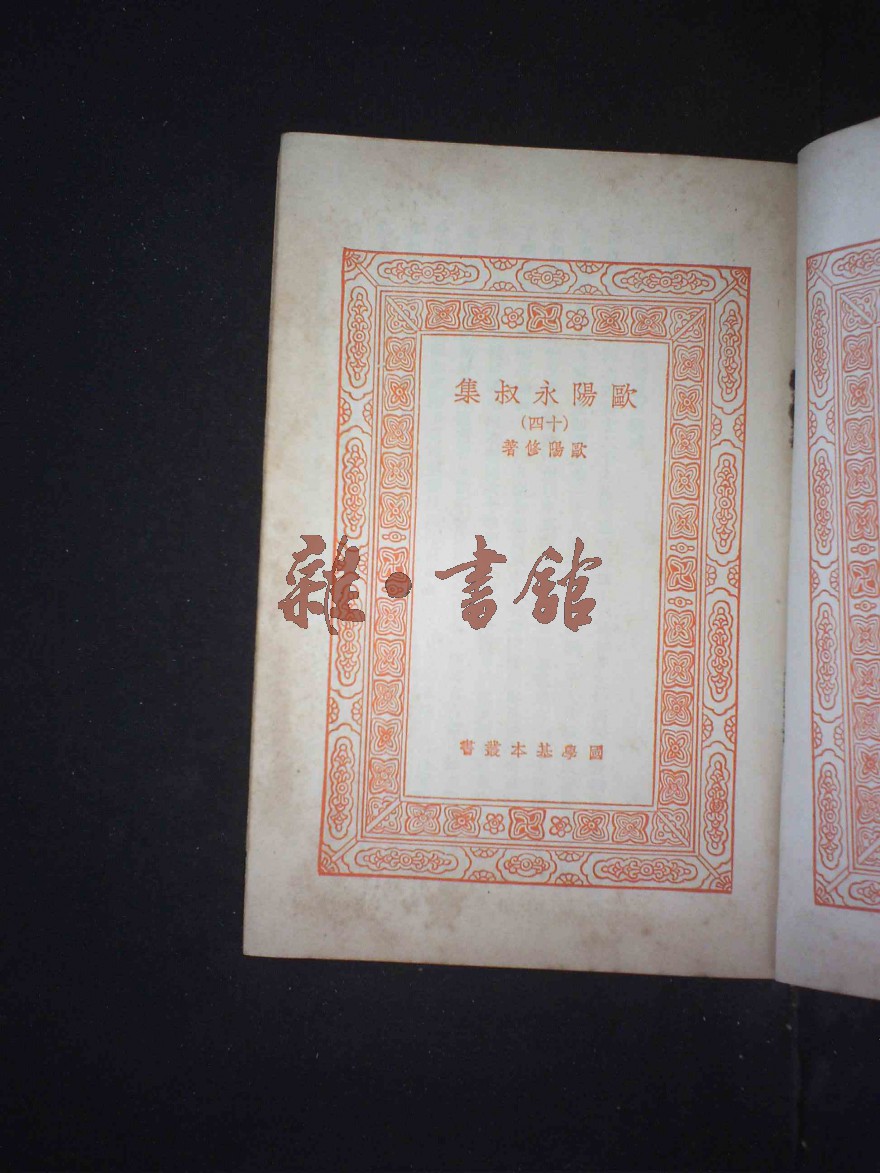 歐陽永叔集
(十四)
歐陽修著
雜·書館
國學基本叢書